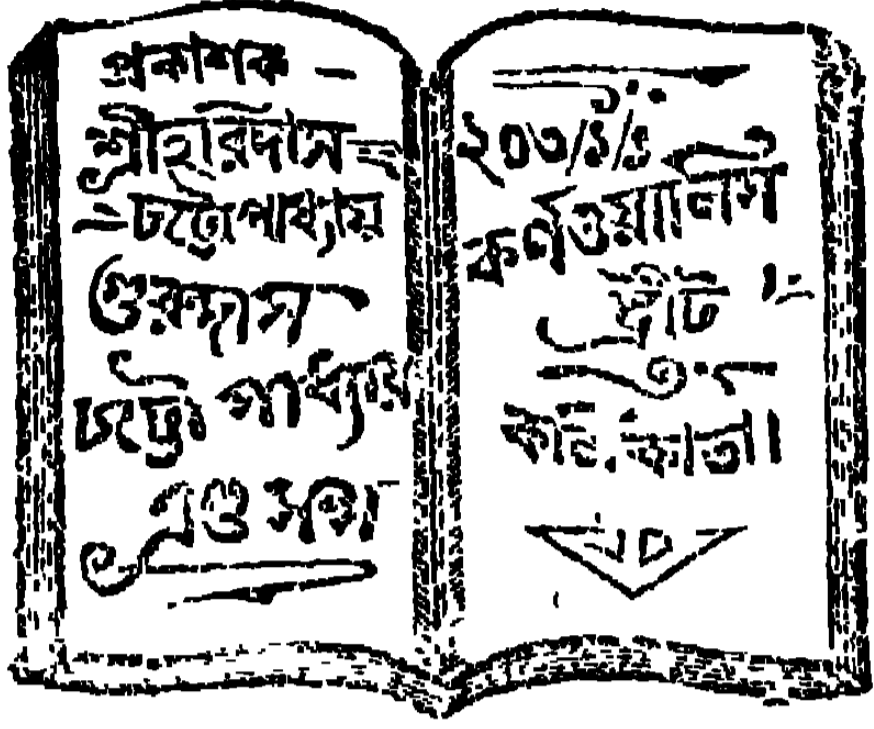 প্রকাশক —
শ্রীহরিদাস
চট্টোপাধ্যায়
গুরুদাস
চট্টোপাধ্যায়
এণ্ড সন্স
২০৩/১/১
কর্ণওয়ালিস
স্ট্রীট
কলিকাতা।